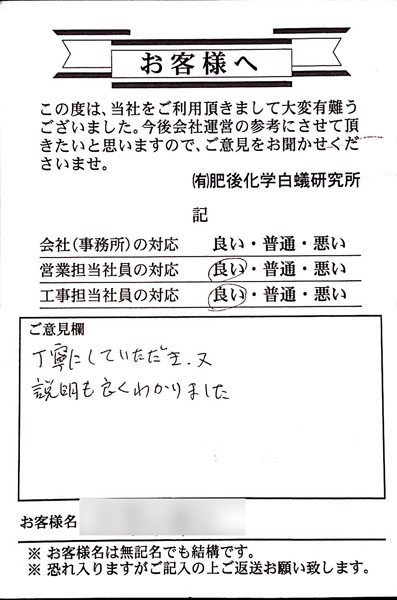 お客様へ
この度は、当社をご利用頂きまして大変有難う
ございました。今後会社運営の参考にさせて頂
きたいと思いますので、ご意見をお聞かせくだ
さいませ。
㈲肥後化学白蟻研究所
記
会社(事務所)の対応 良い・普通・悪い
営業担当社員の対応 良い・普通・悪い
工事担当社員の対応 良い・普通・悪い
ご意見欄
丁寧にしていただき、又
説明も良くわかりました
お客様名
※ お客様名は無記名でも結構です。
※ 恐れ入りますがご記入の上ご返送お願い致します。